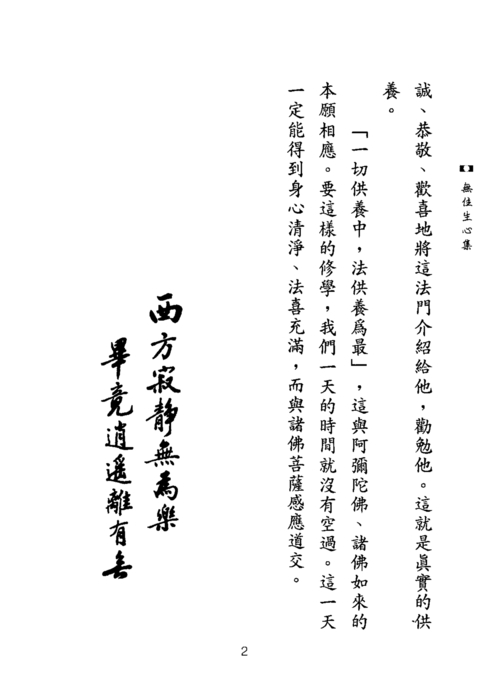 無住生心集
誠、恭敬、歡喜地將這法門介紹給他，勸勉他。這就是真實的供
養。
「一切供養中，法供養爲最」，這與阿彌陀佛、諸佛如來的
本願相應。要這樣的修學，我們一天的時間就沒有空過。這一天
一定能得到身心清淨、法喜充滿，而與諸佛菩薩感應道交。
西方寂靜無為樂
畢竟逍遙離有無
2